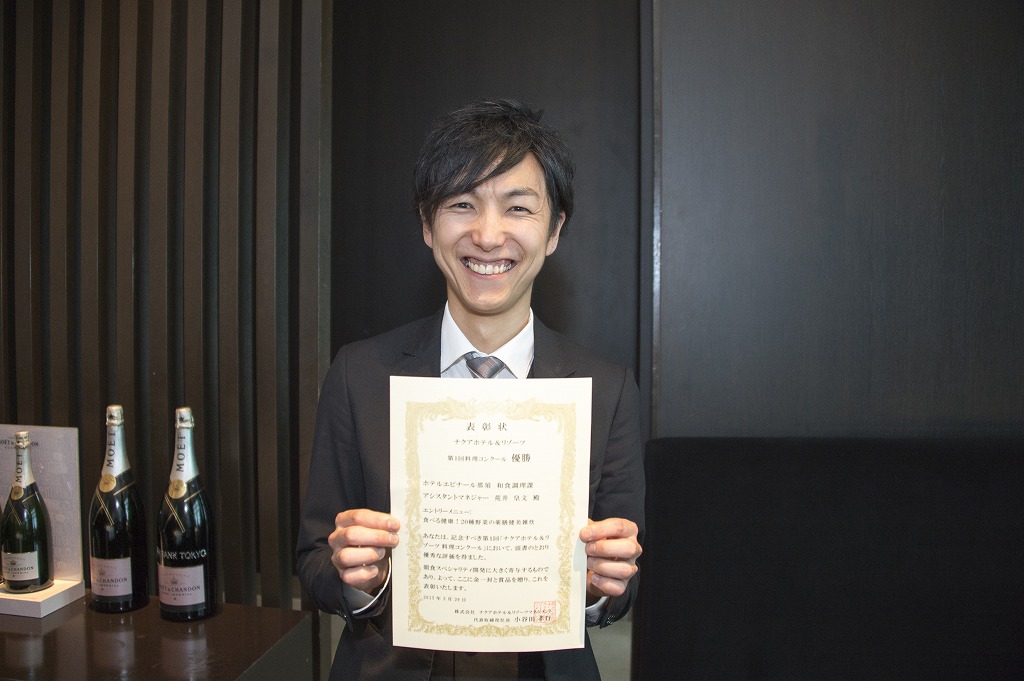 表彰状
ナクアホテル&リゾーツ
第1回料理コンクール 優勝
ホテルエピナール那須 和食調理課
アシスタントマネジャー 荒井 皇文 殿
エントリーメニュー:
食べる健康!20種野菜の薬膳健美雑炊
あなたは、記念すべき第1回「ナクアホテル&リ
ゾーツ 料理コンクール」において、頭書のとおり
優秀な評価を得ました。
朝食スペシャリティ開発に大きく寄与するもので
あり、よって、ここに金一封と賞品を贈り、これを
表彰いたします。
株式会社 ナクアホテル&リゾーツマネジメント
代表取締役社長 小谷田 孝行
MOËT
& CHANDON
MOËT
BANK TOKYO
MOËT & CHANDON